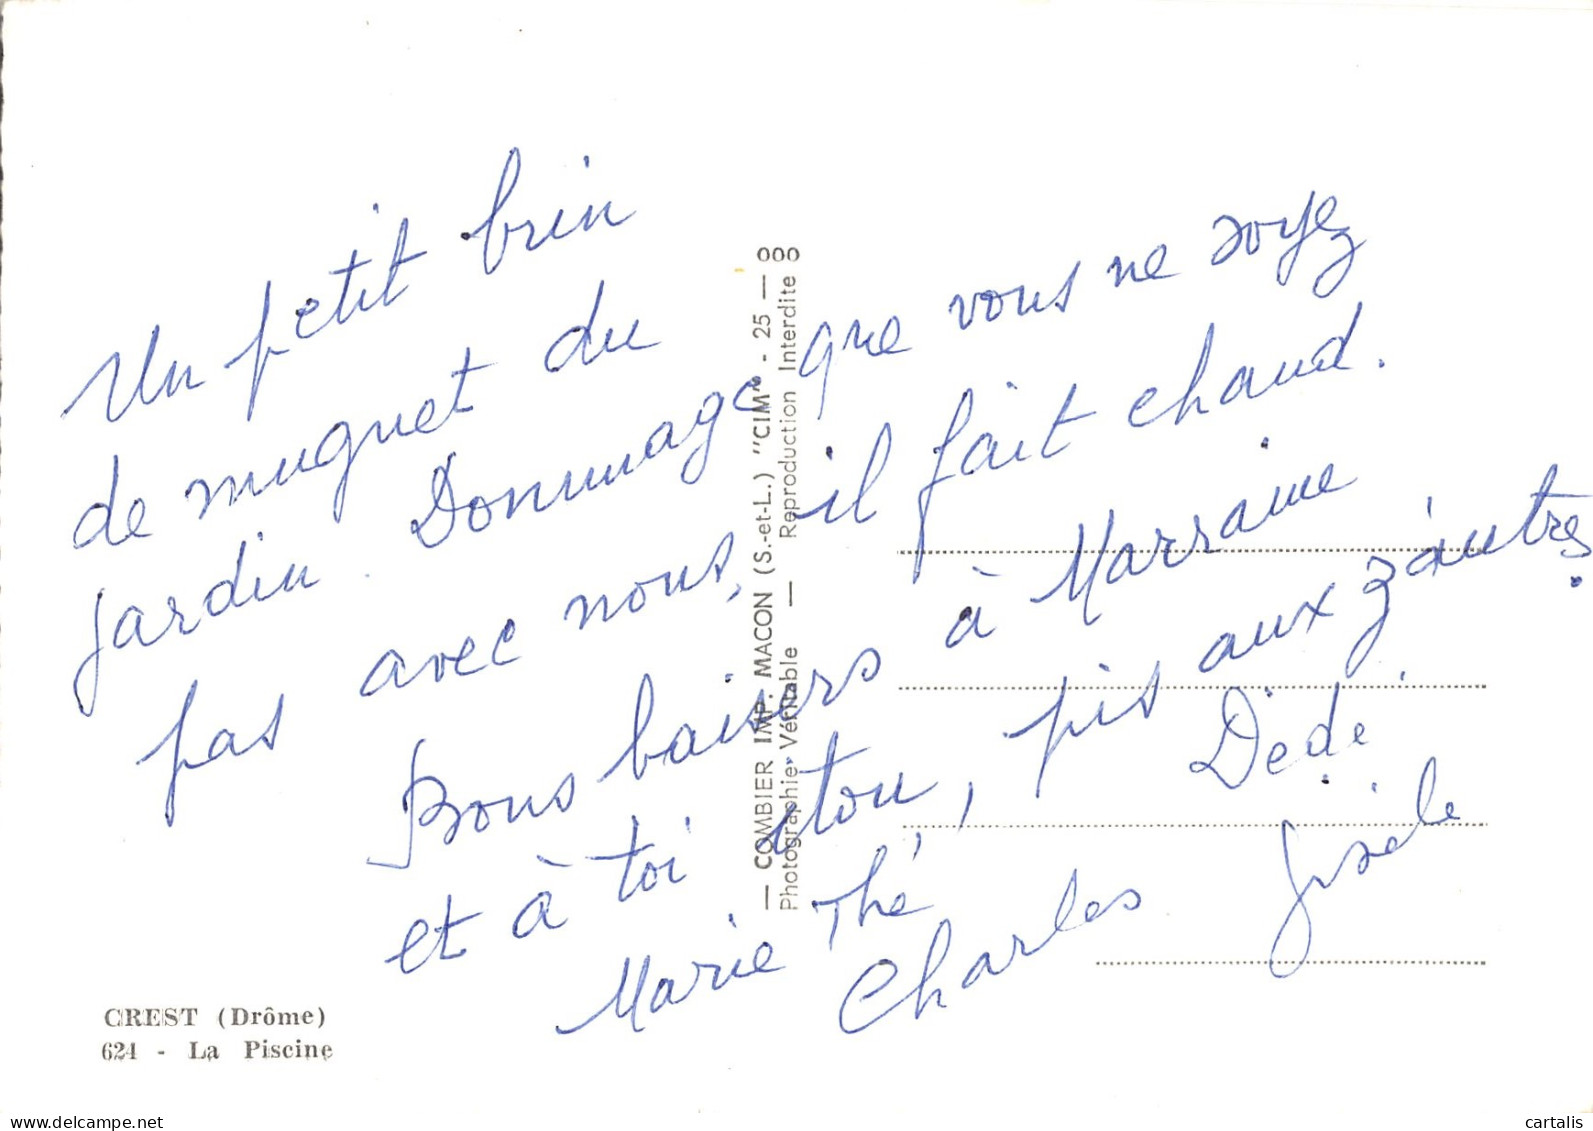 Un petit brin
de muguet du
jardin Dommage que vous ne soyez
pas avec nous, il fait chaud.
Bons baisers à Marraine
et à toi itou, pis aux z'autres
Marie Thé, Dédé
Charles Gisèle
— COMBIER IMP. MACON (S.-et-L.) "CIM" - 25 —
Photographie Véritable — Reproduction Interdite
CREST (Drôme)
624 - La Piscine
www.delcampe.net
cartalis